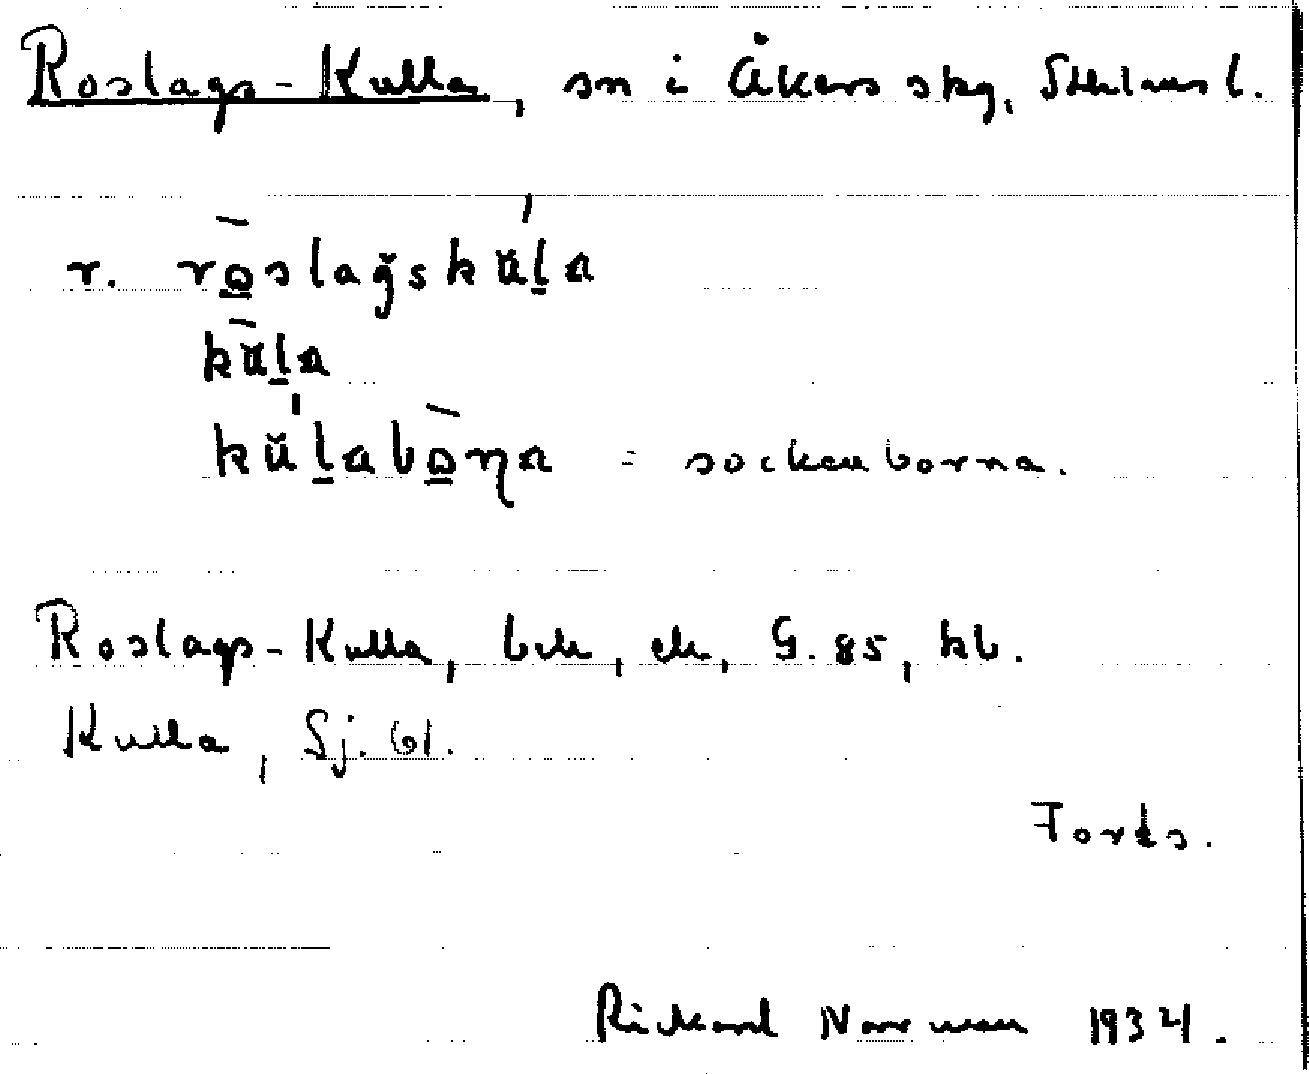 Roslags-Kulla, sn i Åkers skg, Sthlms l.
r. rōslaǧskŭḷa
kŭḷa
kŭḷabōṇa = sockenborna.
Roslags-Kulla, bek, ek, G. 85, kb.
Kulla, Sj. 61.
Forts.
Rickard Norrman 1934.